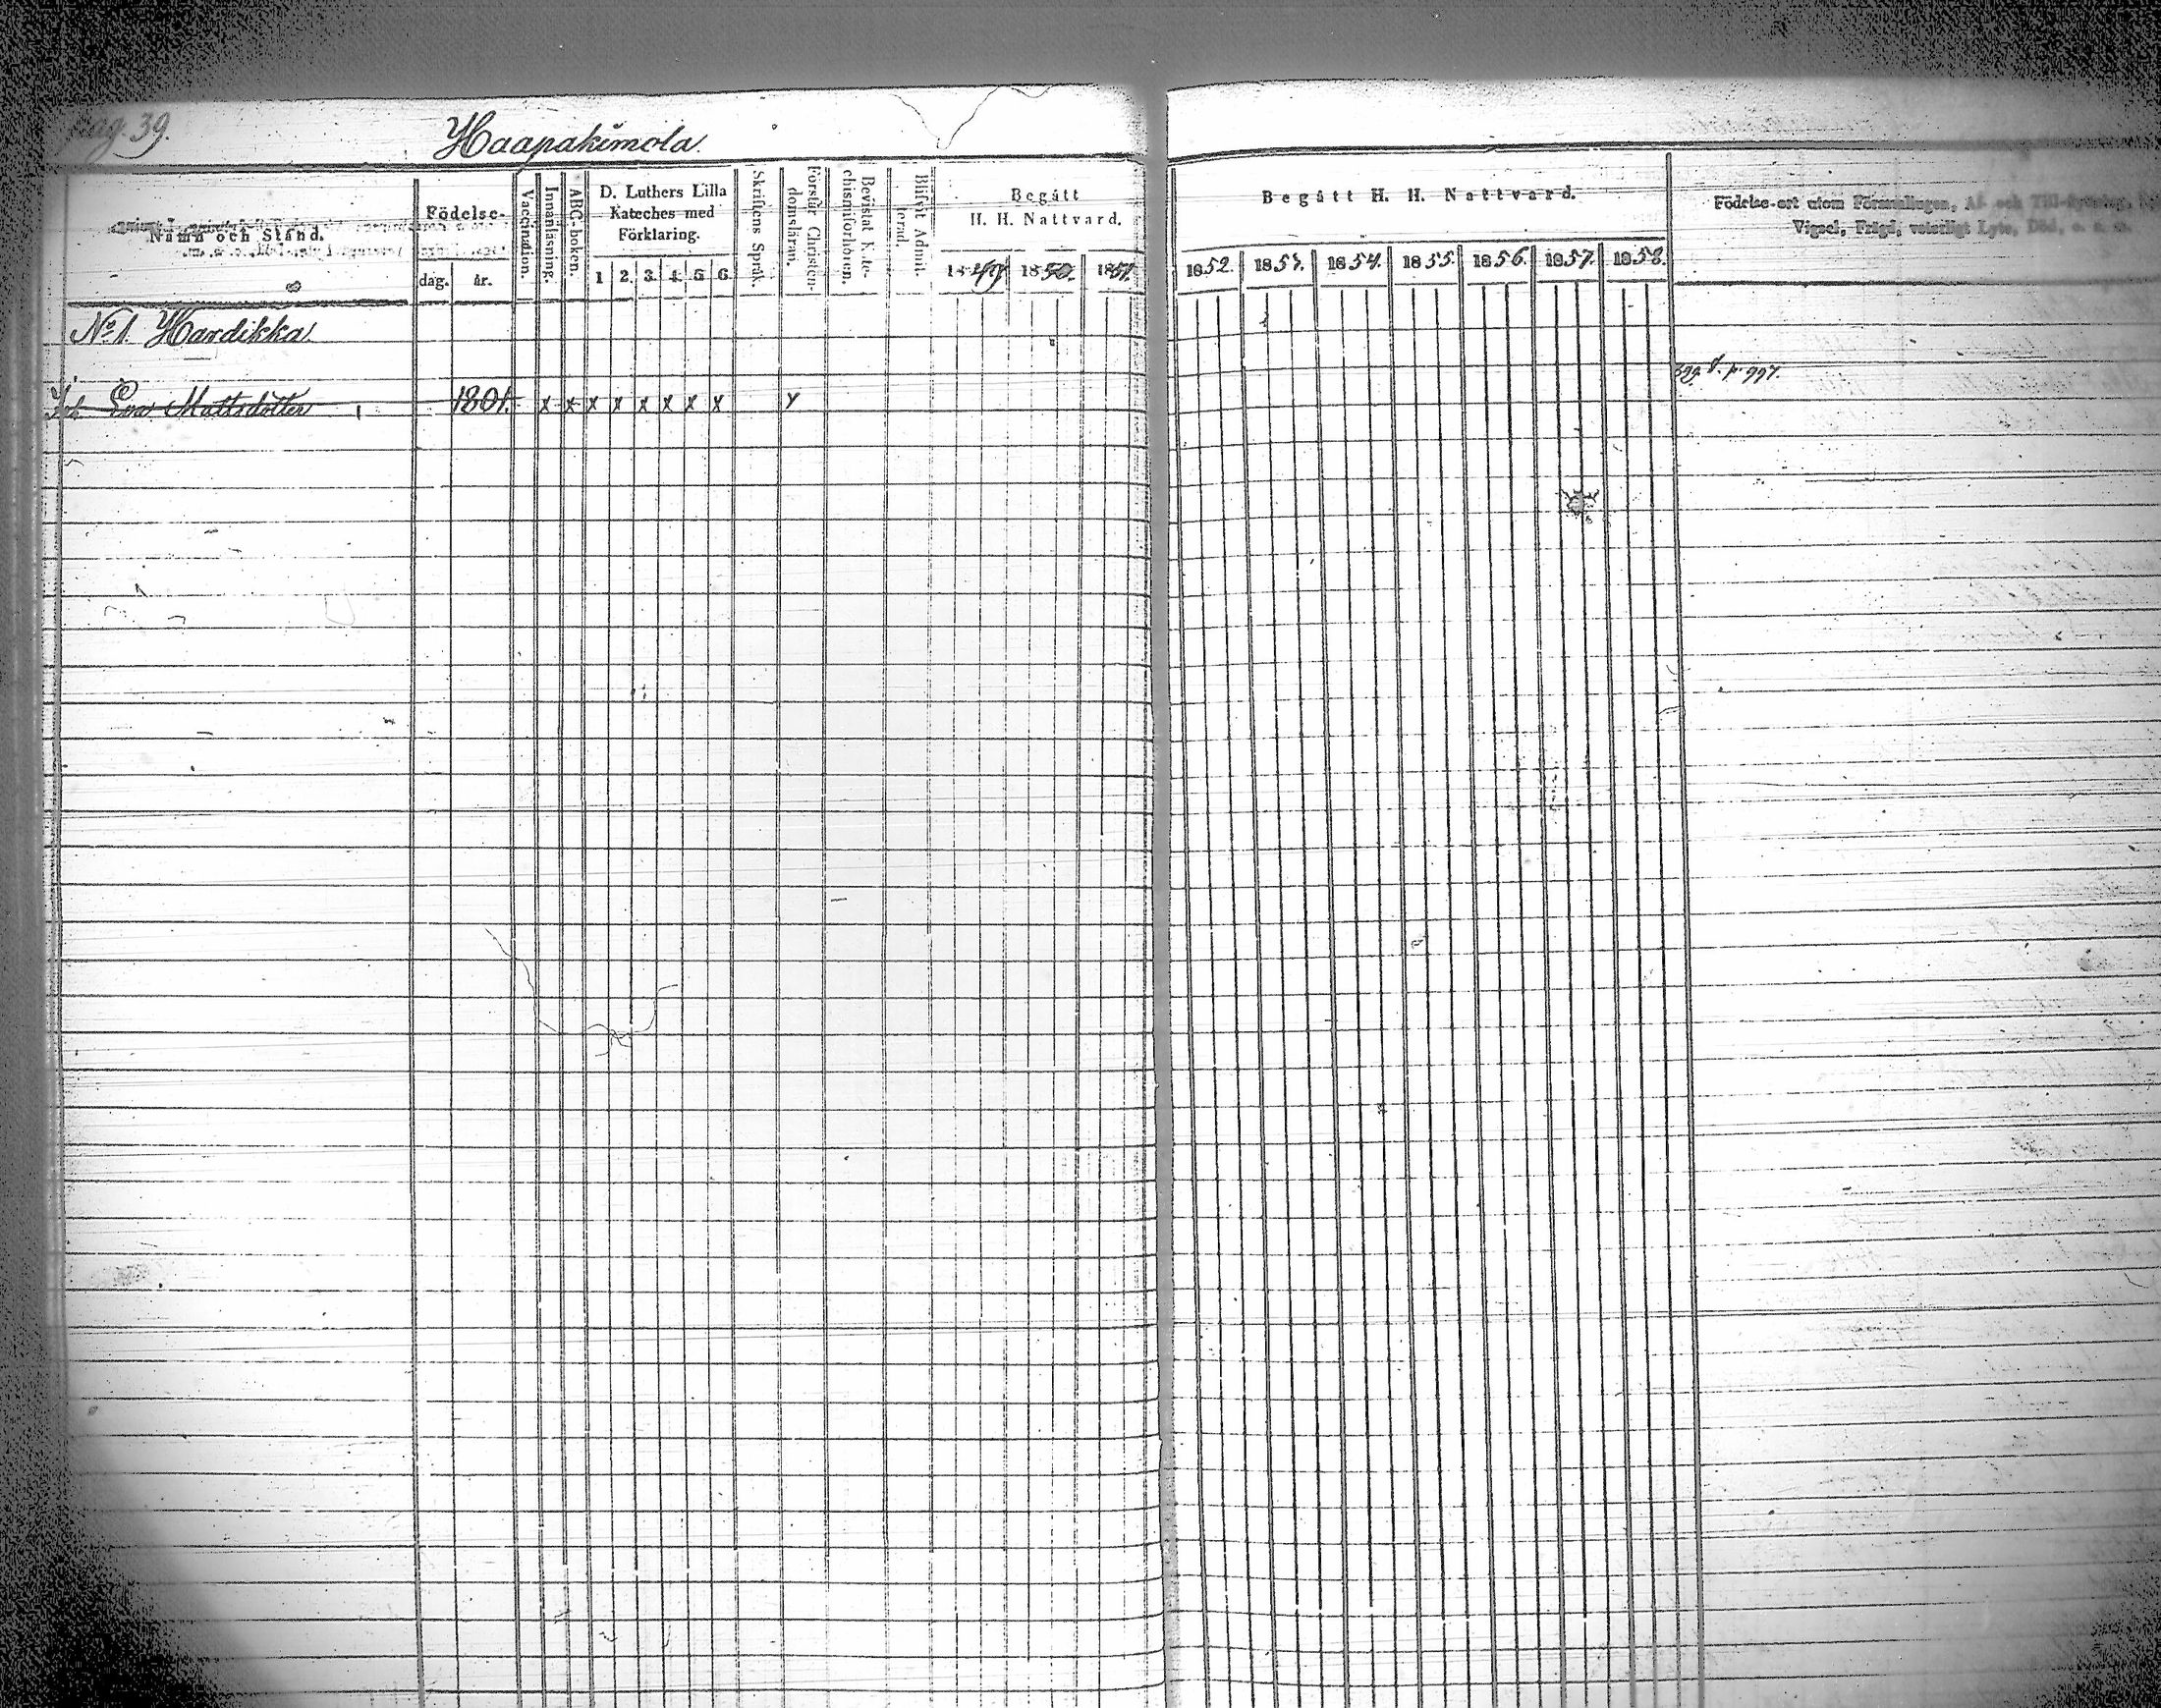 pag. 39.
Haapakimola.
Namn och Stånd.
Födelse-
dag. år.
Vaccination.
Innanläsning.
ABC-boken.
D. Luthers Lilla
Kateches med
Förklaring.
1 2. 3. 4. 5 6.
Skriftens Språk.
Förstår Christen-
domsläran.
Bevistat Kate-
chismiförhören.
Blifvit Admit-
terad.
Begått
H. H. Nattvard.
1849 1850. 1851.
Begått H. H. Nattvard.
1852. 1853. 1854. 1855. 1856. 1857. 1858.
Födelse-ort utom Församlingen, Af- och Till-flyttning,
Vigsel, Frägd, veterligt Lyte, Död, o. s. m.
No 1. Hardikka.
Eva Mattsdotter 1801. x x x x x x x x y
p. 997.